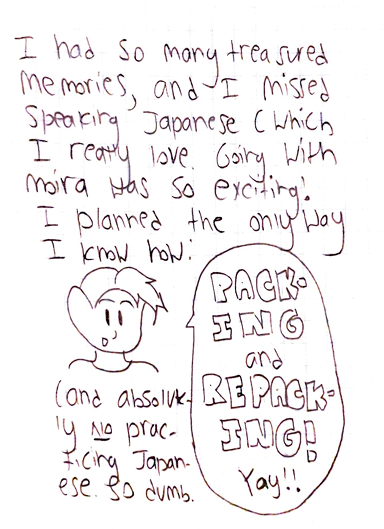 I had so many treasured
memories, and I missed
speaking Japanese (which
I really love. Going with
moira was so exciting!
I planned the only way
I know how:
PACK-
ING
and
REPACK-
ING!
Yay!!
(and absolute-
ly NO prac-
ticing Japan-
ese. So dumb.